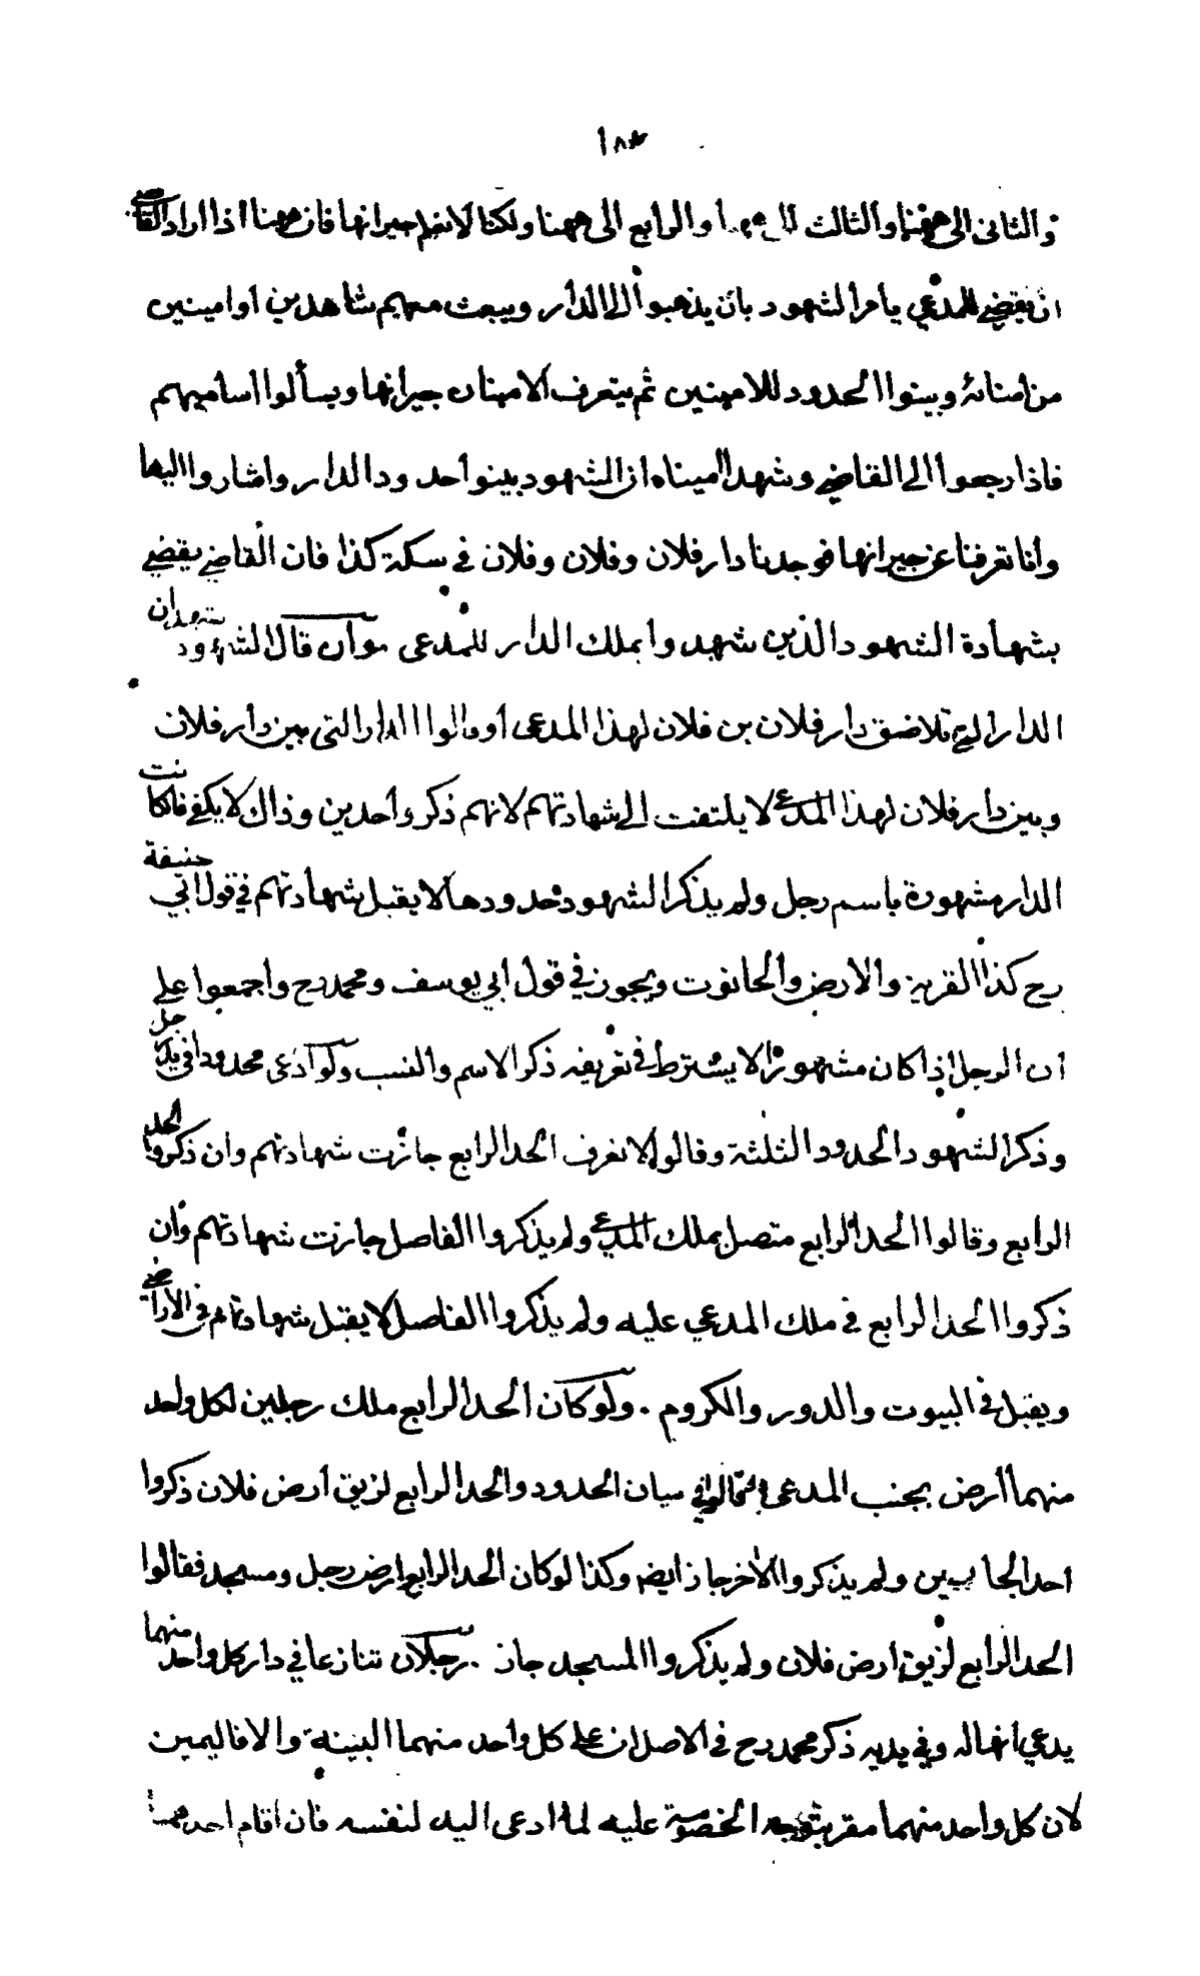 والثانى الى ههنا والثالث الى ههنا والرابع الى ههنا ولكنا لا نعلم جيرانها فان ههنا اذا اراد القاضى
ان يقضي للمدعي يامر الشهود بان يذهبوا الى الدار ويبعث معهم شاهدين او امينين
من امنائه وبينوا الحدود للامينين ثم يتعرف الامينان جيرانها ويسألوا اساميهم
فاذا رجعوا الى القاضي وشهد اميناه ان الشهود بينوا حدود الدار واشاروا اليها
وانا تعرفنا عن جيرانها فوجدنا دار فلان وفلان وفلان في سكة كذا فان القاضي يقضي
بشهادة الشهود الذين شهدوا بملك الدار للمدعى وان قال الشهود نشهد ان
الدار التي تلاصق دار فلان بن فلان لهذا المدعى او قالوا الدار التى بين دار فلان
وبين دار فلان لهذا المدعي لا يلتفت الى شهادتهم لانهم ذكروا حدين وذاك لا يكفي فان كانت
الدار مشهورة باسم رجل ولم يذكر الشهود حدودها لا يقبل شهادتهم في قول ابي حنيفة
رح كذا القرية والارض والحانوت ويجوز في قول ابي يوسف ومحمد رح واجمعوا على
ان الرجل اذا كان مشهورا لا يشترط في تعريفه ذكر الاسم والنسب ولو ادعى محدودا في يد رجل
وذكر الشهود الحدود الثلثة وقالوا لا نعرف الحد الرابع جازت شهادتهم وان ذكروا الحد
الرابع وقالوا الحد الرابع متصل بملك المدعي ولم يذكروا الفاصل جازت شهادتهم وان
ذكروا الحد الرابع في ملك المدعي عليه ولم يذكروا الفاصل لا يقبل شهادتهم فى الاراضي
ويقبل في البيوت والدور والكروم . ولو كان الحد الرابع ملك رجلين لكل واحد
منهما ارض بجنب المدعى فقالوا في بيان الحدود والحد الرابع لزيق ارض فلان ذكروا
احد الجانبين ولم يذكروا الاخر جاز ايضا وكذا لو كان الحد الرابع ارض رجل ومسجد فقالوا
الحد الرابع لزيق ارض فلان ولم يذكروا المسجد جاز . رجلان تنازعا في دار كل واحد منهما
يدعي انها له وفي يديه ذكر محمد رح في الاصل ان على كل واحد منهما البينة والا فاليمين
لان كل واحد منهما مقر بتوجه الخصومة عليه لما ادعى اليد لنفسه فان اقام احدهما